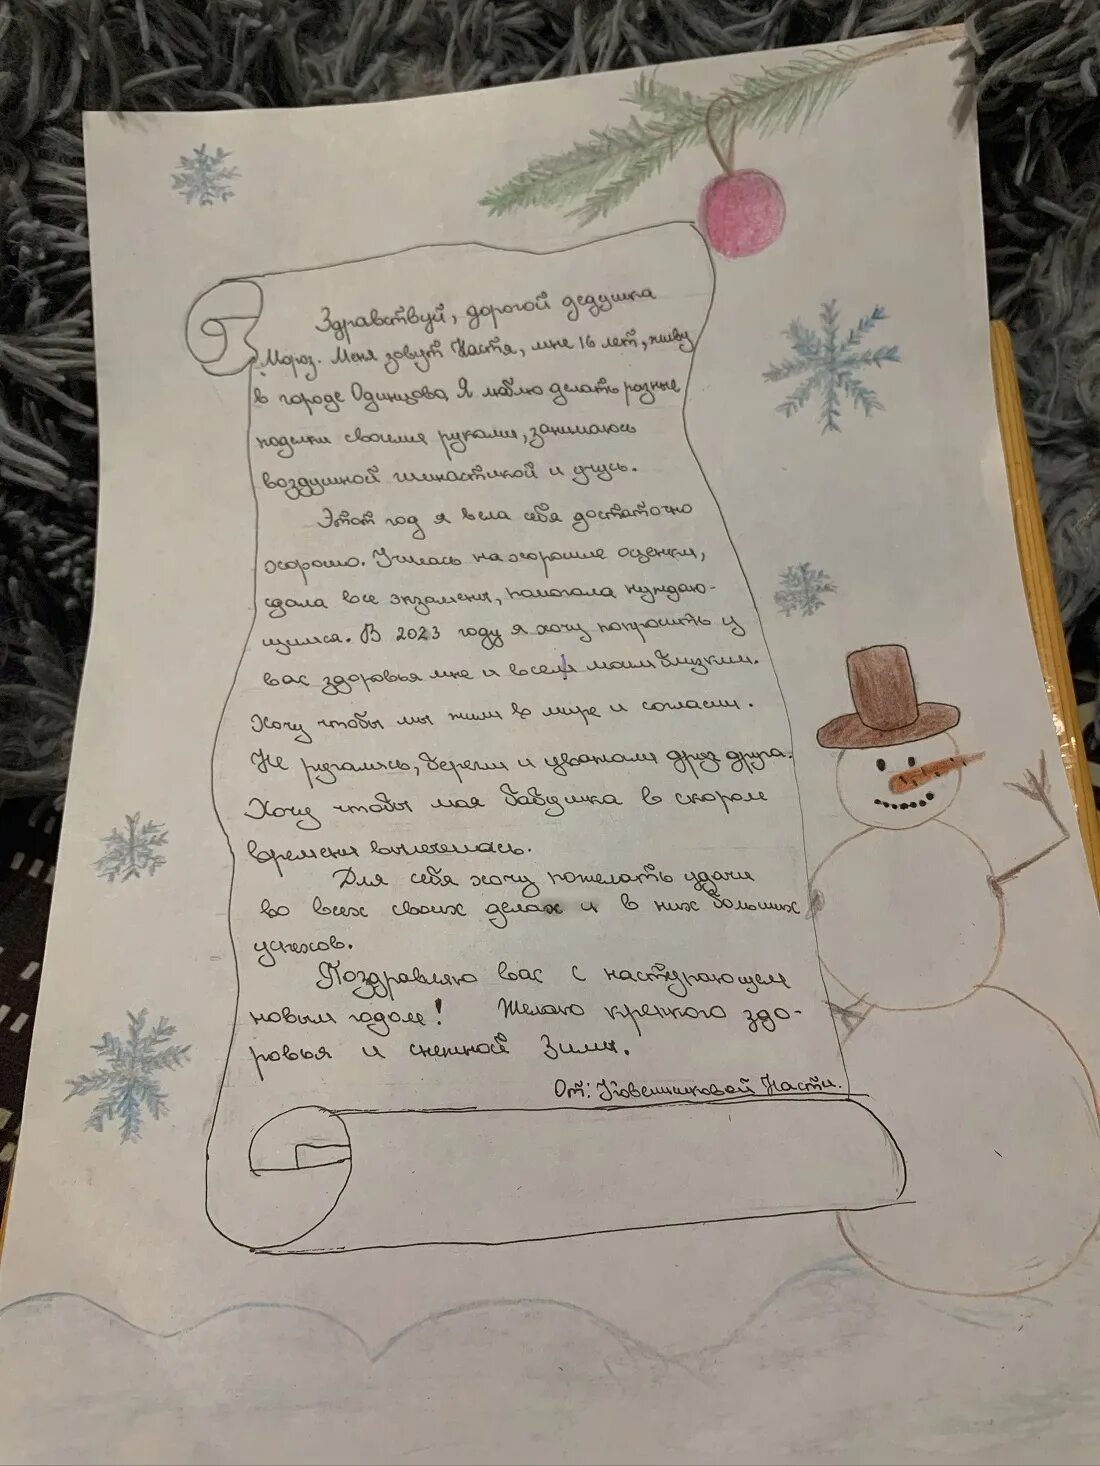 Здравствуй, дорогой дедушка
Мороз. Меня зовут Настя, мне 16 лет, живу
в городе Одинцово. Я люблю делать разные
поделки своими руками, занимаюсь
воздушной гимнастикой и учусь.
Этот год я вела себя достаточно
хорошо. Училась на хорошие оценки,
сдала все экзамены, помогала нуждаю-
щимся. В 2023 году я хочу попросить у
вас здоровья мне и всем моим близким.
Хочу чтобы мы жили в мире и согласии.
Не ругались, берегли и уважали друг друга.
Хочу чтобы моя бабушка в скором
времени вылечилась.
Для себя хочу пожелать удачи
во всех своих делах и в них больших
успехов.
Поздравляю вас с наступающем
новым годом! Желаю крепкого здо-
ровья и снежной зимы.
От: Насти.